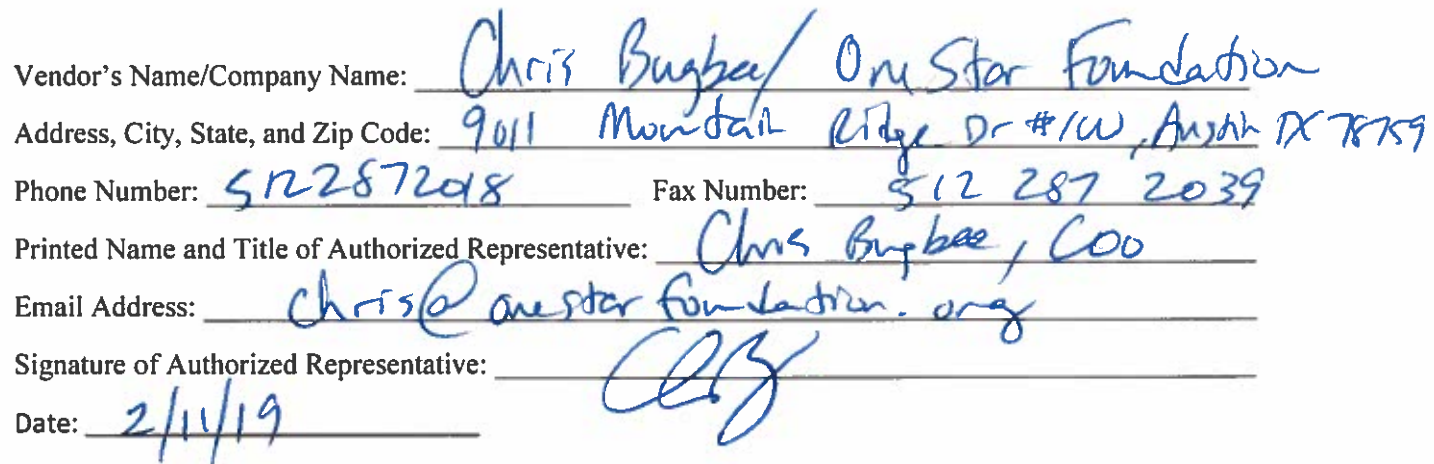 Vendor's Name/Company Name: Chris Bugbee/ OneStar Foundation
Address, City, State, and Zip Code: 9011 Mountain Ridge Dr #100, Austin TX 78759
Phone Number: 5122872018 Fax Number: 512 287 2039
Printed Name and Title of Authorized Representative: Chris Bugbee, COO
Email Address: chris@onestarfoundation.org
Signature of Authorized Representative:
Date: 2/11/19